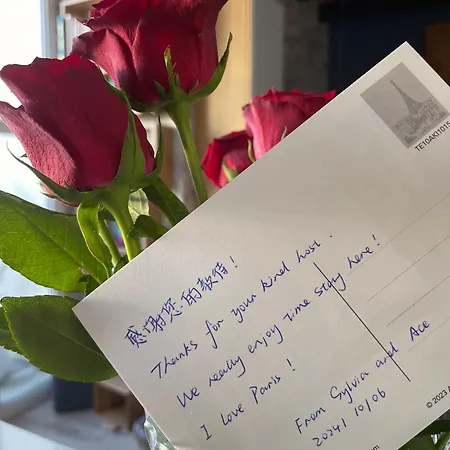 感谢您的款待!
Thanks for your kind host.
We really enjoy time stay here!
I love Paris!
From Sylvia and Ace
2024/10/06
TE10AKI1015
© 2023 A
om